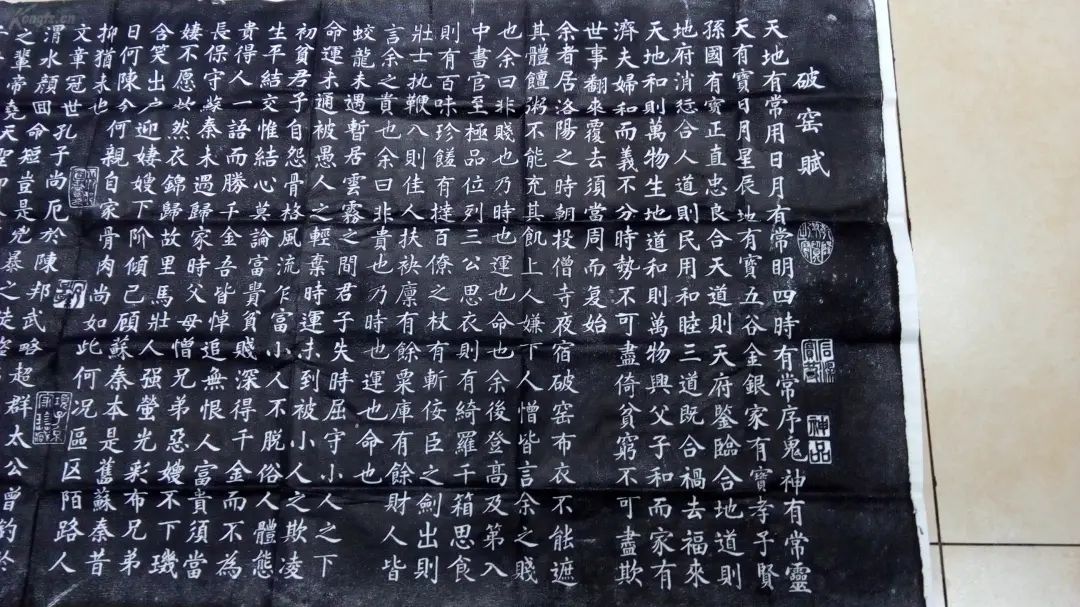 破窑賦
天地有常用日月有常明四時有常序鬼神有常靈
天有寶日月星辰地有寶五谷金銀家有寶孝子賢
孫國有寶正直忠良合天道則天府鑒臨合地道則
地府消愆合人道則民用和睦三道既合禍去福來
天地和則萬物生地道和則萬物興父子和而家有
濟夫婦和而義不分時勢不可盡倚貧窮不可盡欺
世事翻來覆去須當周而复始
余者居洛陽之時朝投僧寺夜宿破窑布衣不能遮
其體饘粥不能充其飢上人嫌下人憎皆言余之賤
也余曰非賤也乃時也運也命也余後登高及第入
中書官至極品位列三公思衣則有綺羅千箱思食
則有百味珍饈有撻百僚之杖有斬佞臣之劍出則
壯士执鞭入則佳人扶袂廪有餘粟庫有餘財人皆
言余之貴也余曰非貴也乃時也運也命也
蛟龍未遇暫居雲霧之間君子失時屈守小人之下
命運未通被愚人之輕棄時運未到被小人之欺凌
初貧君子自怨骨格風流乍富小人不脱俗人體態
生平結交惟結心莫論富貴貧賤深得千金而不為
貴得人一語而勝千金吾皆悼追無恨人富貴須當
長保守蘇秦未遇歸家時父母憎兄弟惡嫂不下璣
妻不愿炊然衣錦歸故里馬壯人强螢光彩布兄弟
含笑出户迎妻嫂下阶傾己顧蘇秦本是舊蘇秦昔
日何陳今何親自家骨肉尚如此何况區区陌路人
抑猶未也
文章冠世孔子尚厄於陳邦武略超群太公曾釣於
渭水顔回命短豈是兇暴之徒
之輩帝堯天聖
神品